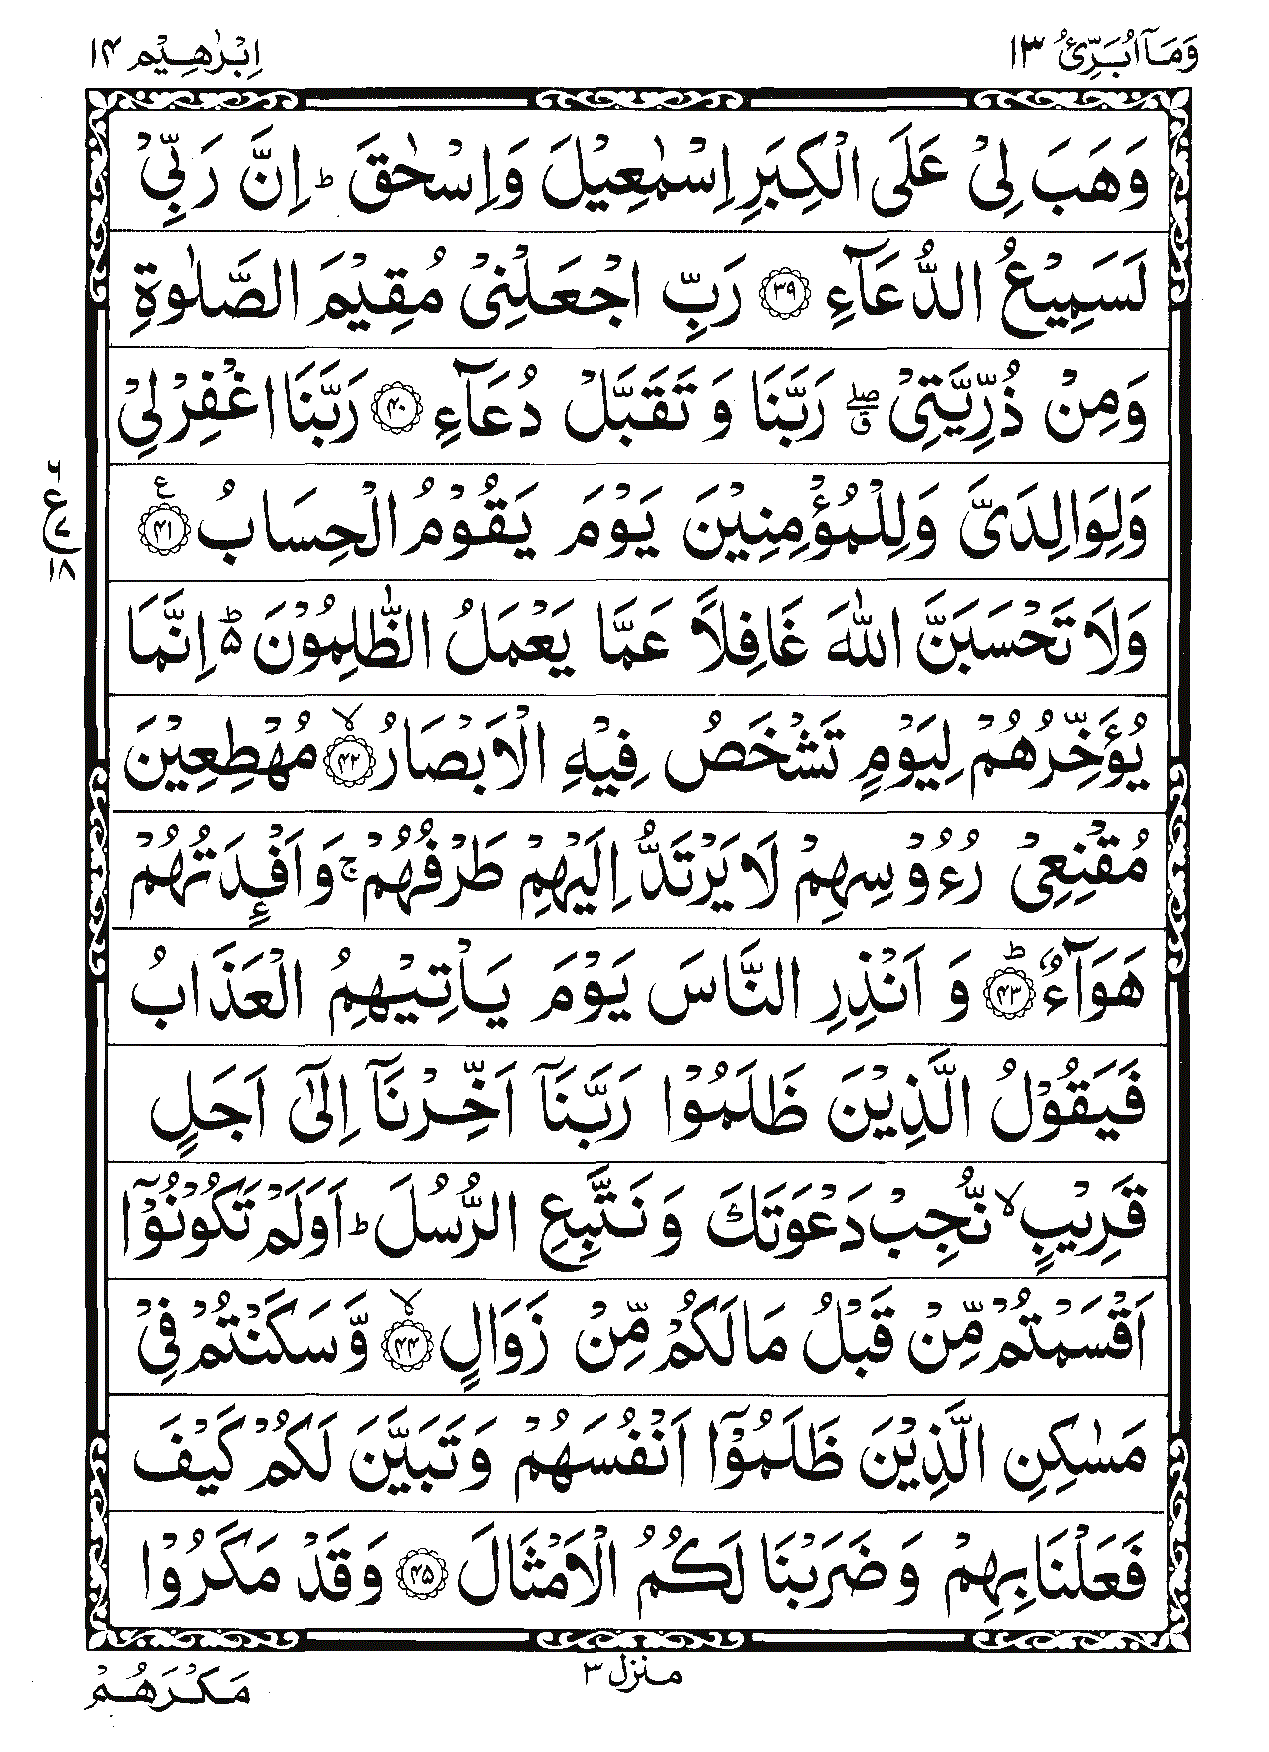 وَمَاۤ اُبَرِّئُ ١٣
اِبْرٰهِيْم ١٤
وَهَبَ لِيْ عَلَى الْكِبَرِ اِسْمٰعِيْلَ وَاِسْحٰقَ ؕ اِنَّ رَبِّيْ
لَسَمِيْعُ الدُّعَآءِ ﴿٣٩﴾ رَبِّ اجْعَلْنِيْ مُقِيْمَ الصَّلٰوةِ
وَمِنْ ذُرِّيَّتِيْ ۖۗ رَبَّنَا وَ تَقَبَّلْ دُعَآءِ ﴿٤٠﴾ رَبَّنَا اغْفِرْ لِيْ
وَلِوَالِدَيَّ وَلِلْمُؤْمِنِيْنَ يَوْمَ يَقُوْمُ الْحِسَابُ ﴿٤١﴾ ع
٦ ع ٧ ١٨
وَلَا تَحْسَبَنَّ اللّٰهَ غَافِلًا عَمَّا يَعْمَلُ الظّٰلِمُوْنَ ؕ۵ اِنَّمَا
يُؤَخِّرُهُمْ لِيَوْمٍ تَشْخَصُ فِيْهِ الْاَبْصَارُ ﴿٤٢﴾ ۙ مُهْطِعِيْنَ
مُقْنِعِيْ رُءُوْسِهِمْ لَا يَرْتَدُّ اِلَيْهِمْ طَرْفُهُمْ ۚ وَاَفْـِٕدَتُهُمْ
هَوَآءٌ ﴿٤٣﴾ ؕ وَ اَنْذِرِ النَّاسَ يَوْمَ يَاْتِيْهِمُ الْعَذَابُ
فَيَقُوْلُ الَّذِيْنَ ظَلَمُوْا رَبَّنَاۤ اَخِّرْنَاۤ اِلٰۤى اَجَلٍ
قَرِيْبٍ ۙ نُّجِبْ دَعْوَتَكَ وَ نَتَّبِعِ الرُّسُلَ ؕ اَوَلَمْ تَكُوْنُوْۤا
اَقْسَمْتُمْ مِّنْ قَبْلُ مَا لَكُمْ مِّنْ زَوَالٍ ﴿٤٤﴾ ۙ وَّسَكَنْتُمْ فِيْ
مَسٰكِنِ الَّذِيْنَ ظَلَمُوْۤا اَنْفُسَهُمْ وَتَبَيَّنَ لَكُمْ كَيْفَ
فَعَلْنَا بِهِمْ وَضَرَبْنَا لَكُمُ الْاَمْثَالَ ﴿٤٥﴾ وَقَدْ مَكَرُوْا
منزل ٣
مَكْرَهُمْ